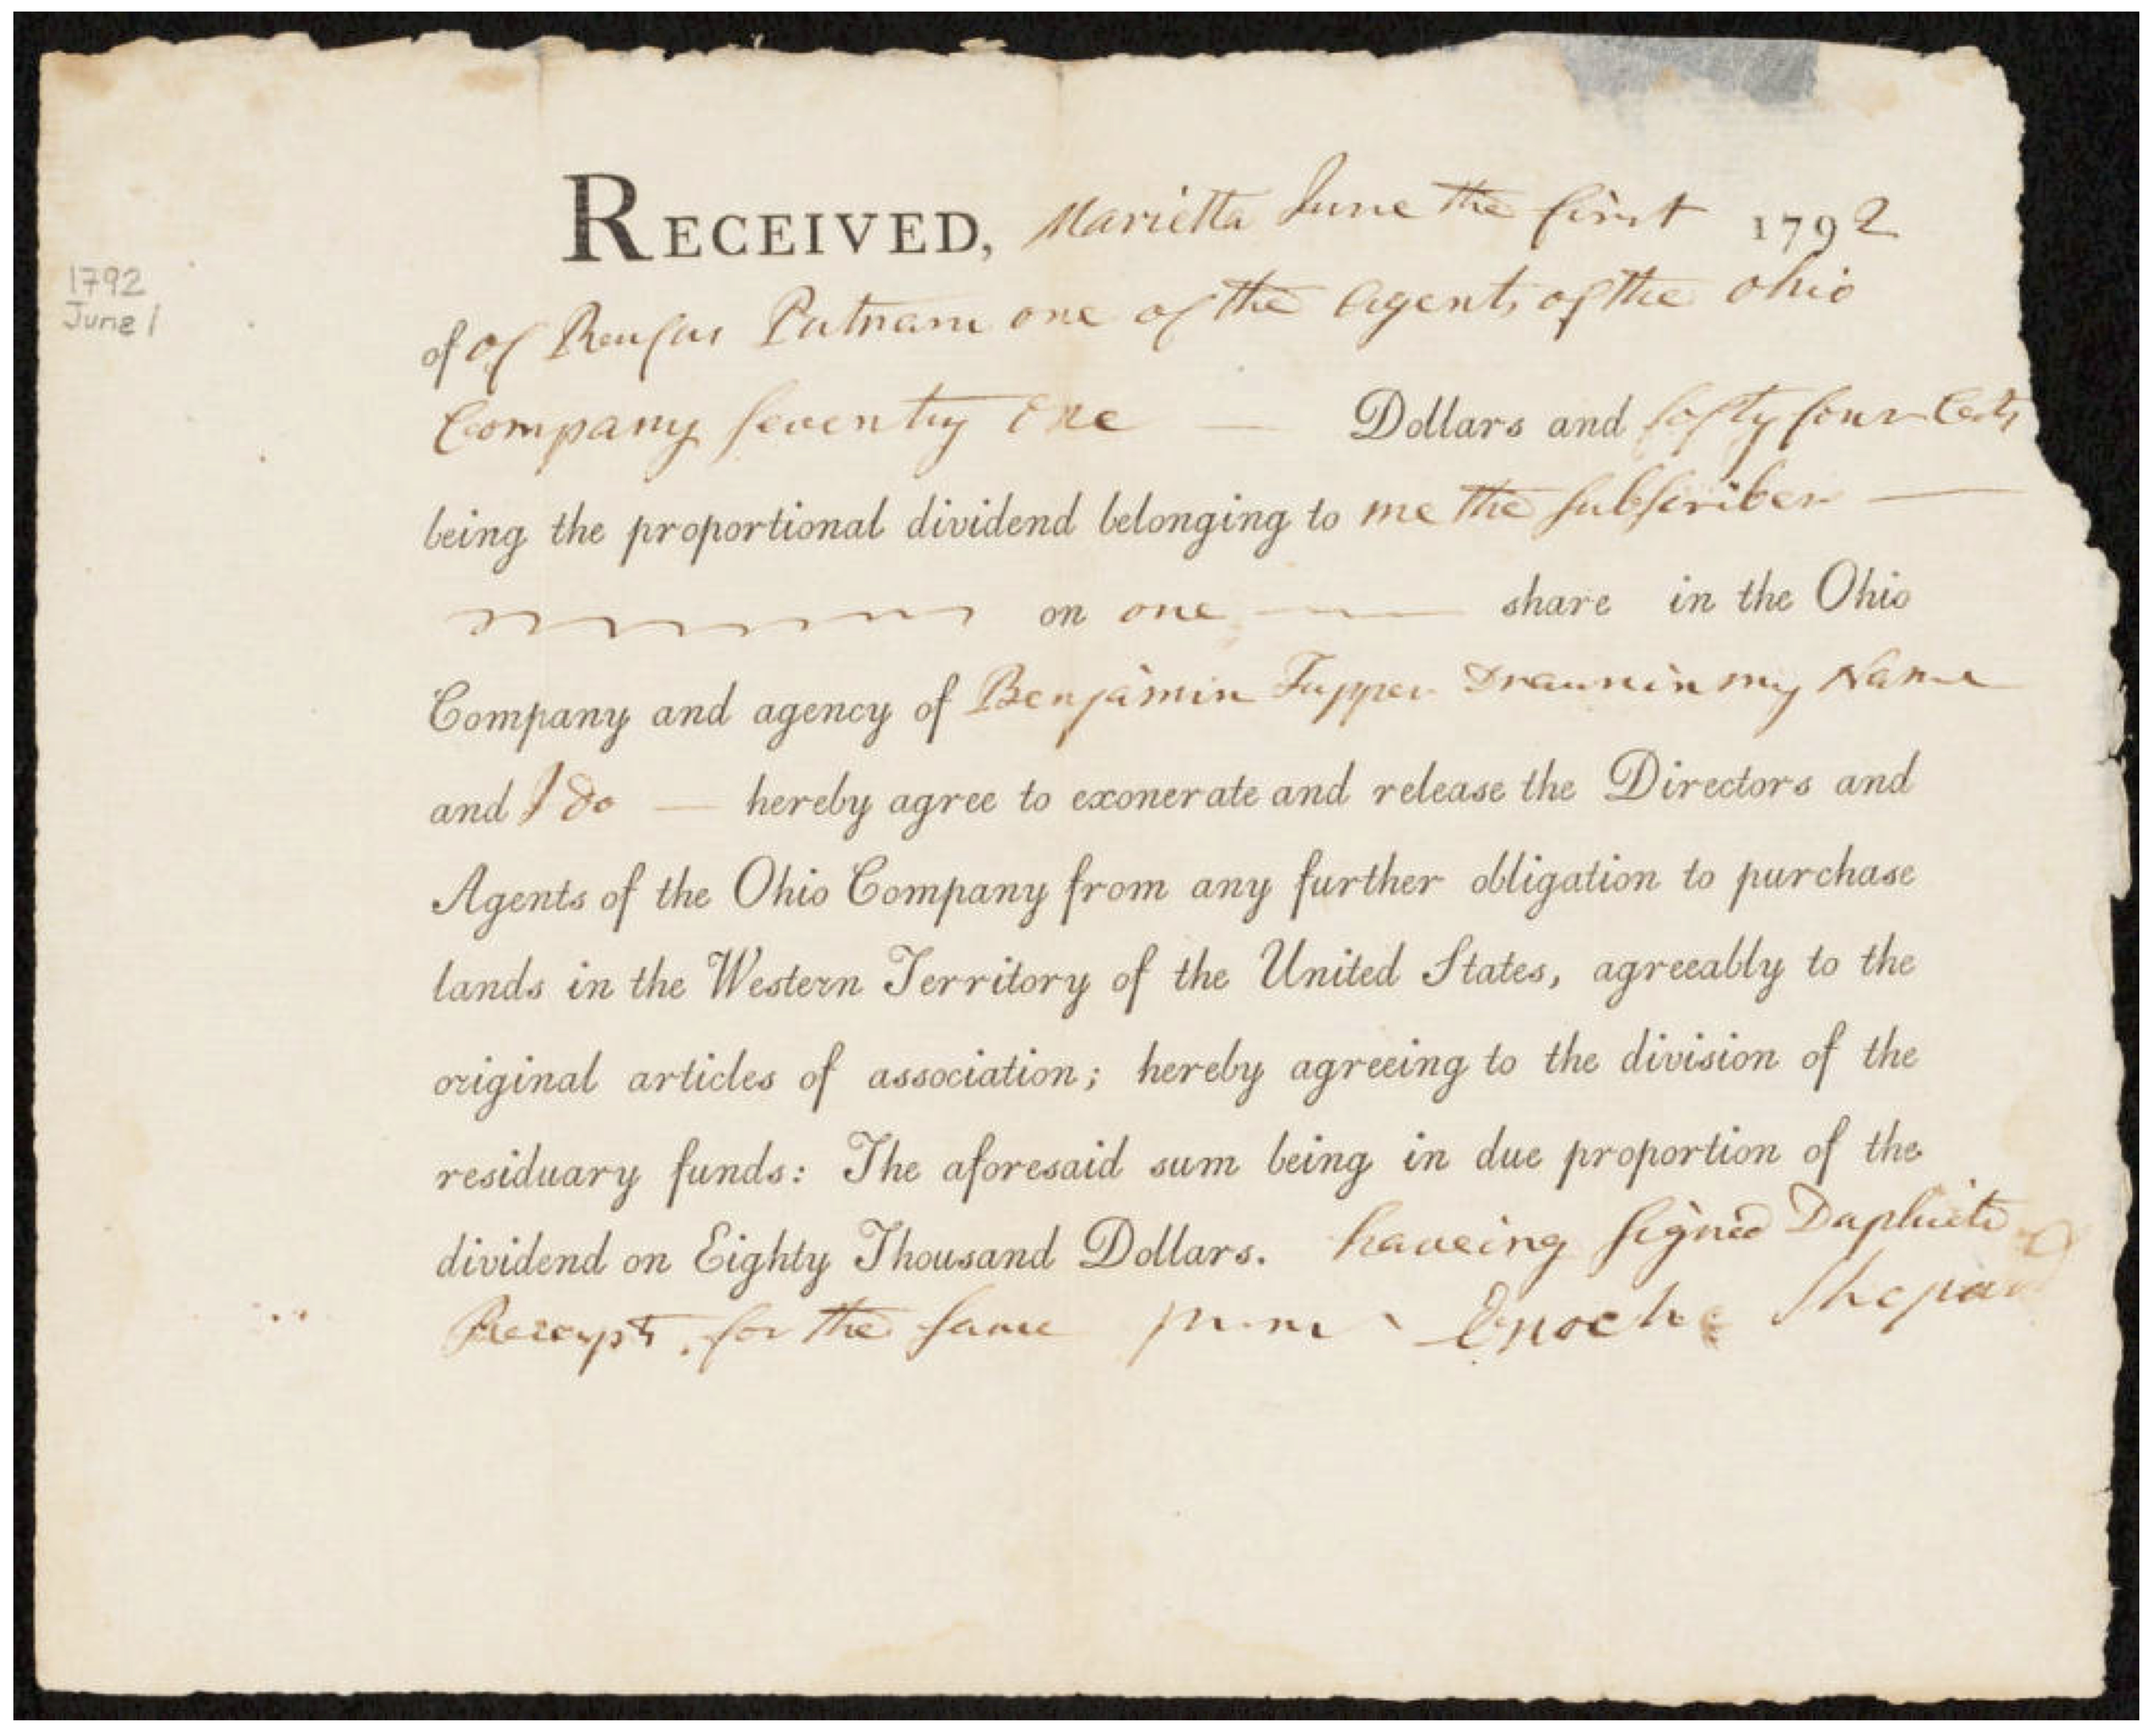 RECEIVED, Marietta June the first 1792
1792
June 1
of of Reufus Putnam one of the Agents of the Ohio
Company seventy one — Dollars and fofty four Cets
being the proportional dividend belonging to me the subscriber —
on one — share in the Ohio
Company and agency of Benjamin Tupper Drawn in my Name
and I do — hereby agree to exonerate and release the Directors and
Agents of the Ohio Company from any further obligation to purchase
lands in the Western Territory of the United States, agreeably to the
original articles of association; hereby agreeing to the division of the
residuary funds: The aforesaid sum being in due proportion of the
dividend on Eighty Thousand Dollars. haveing signed Duplicte
Receipts for the same Enoch Shepard